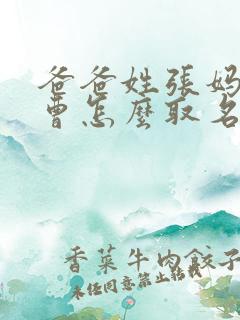 爸爸姓張妈
曹怎麼取名
香菜牛肉餃子
未经同意禁止转载